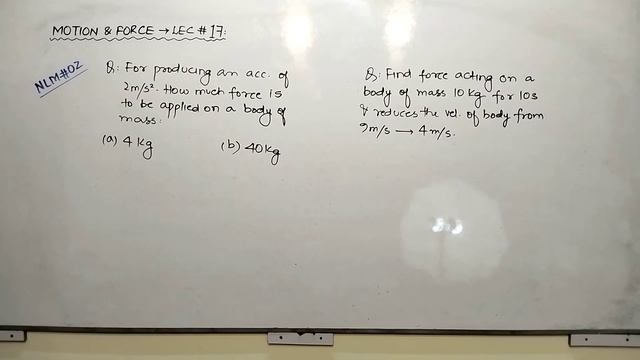 MOTION & FORCE → LEC # 17:
NLM#02
Q: For producing an acc. of
2m/s². How much force is
to be applied on a body of
mass:
(a) 4 kg (b) 40 kg
Q: Find force acting on a
body of mass 10 kg for 10s
& reduces the vel. of body from
9m/s → 4 m/s.